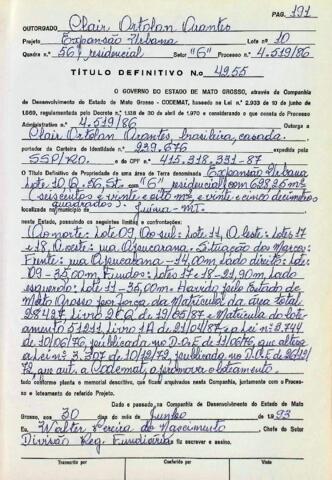 PAG. 191
OUTORGADO Clair Ortolan Arantes
Projeto Expansão Urbana Lote n.o 10
Quadra n.o 56, residencial Setor "G" Processo n.o 4.519/86
TÍTULO DEFINITIVO N.o 4955
O GOVERNO DO ESTADO DE MATO GROSSO, através da Companhia
de Desenvolvimento do Estado de Mato Grosso - CODEMAT, baseado na Lei n.o 2.933 de 10 de junho de
1869, regulamentada pelo Decreto n.o 1.138 de 30 de abril de 1970 e considerando o que consta do Processo
Administrativo n.o 4.519/86 Outorga a
Clair Ortolan Arantes, brasileira, casada.
portador da Carteira de Identidade n.o 239.676 expedida pela
SSP/RO. e do CPF n.o 415.318.331-87
O Título Definitivo de Propriedade de uma área de Terra denominada Expansão Urbana
Lote 10, Q. 56, St. "G" residencial com 628,25 m²
(seiscentos e vinte e oito m², e vinte e cinco decímetros
quadrados).
localizada no município de Juína - MT.
neste Estado, possuindo os seguintes limites e confrontações:
(Ao norte: Lote 09, Ao sul: Lote 11, A leste: Lotes 17
e 18, A oeste: rua Apucarana. Situação dos Marcos:
Frente: rua Apucarana - 14,00m, lado direito: lote
09 - 35,00m, Fundos: Lotes 17 e 18 - 21,90m, Lado
esquerdo: Lote 11 - 35,00m. Havido pelo Estado de
Mato Grosso por força da Matrícula da área total
28.427, Livro 2CQ de 19/05/87 e Matrícula do Lote-
amento 51211 Livro 1A de 21/04/87, a Lei n.º 3.744
de 10/06/76, publicada no D.O.E de 11/06/76, que altera
a Lei n.º 3.307 de 10/12/72, publicada no D.O.E de 26/12/
72, que aut. a Codemat, a promover o loteamento.
tudo conforme planta e memorial descritivo, que ficam arquivados nesta Companhia, juntamente com o Proces-
so e loteamento do referido Projeto.
Dado e passado na Companhia de Desenvolvimento do Estado de Mato
Grosso, aos 30 dias do mês de Junho de 1.993
Eu, Walter Pereira do Nascimento Chefe do Setor
Divisão Reg. Fundiária fiz escrever e assino.
Transcrito por Conferido por Visto